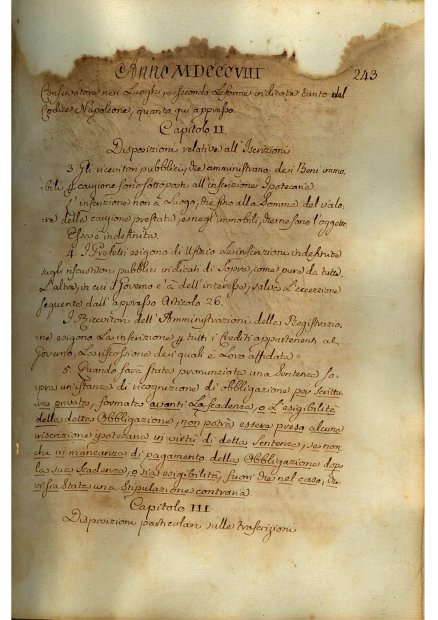 Anno MDCCCVIII 243
Conservatore nei Luoghi, e secondo Le forme indicate tanto dal
Codice Napoleone, quanto qui appresso.
Capitolo II.
Disposizioni relative all'Iscrizioni
3. Gli ricevitori pubblici, che amministrano dei Beni immo-
bili p cauzione sono sottoposti all'inscrizione Ipotecaria.
L'inscrizione non à Luogo, che fino alla Somma del valo-
re della cauzione prestata, e negl'immobili, che ne sono l'oggetto
Essa è indefinita.
4. I Prefetti esigono di Ufizio Le inscrizioni indefinite
sugli riscuotitori pubblici indicati di Sopra, come pure da tutte
L'altre, in cui il Governo v'à dell'interesse, salva L'eccezione
seguente dall'appresso Articolo 26.
I Ricevitori dell'Amministrazioni della Registrazio-
ne esigono La inscrizione p tutti i Crediti appartenenti al
Governo, La riscossione dei quali è Loro affidata.
5. Quando sarà stata pronunziata una Sentenza so-
pra un'istanza di ricognizione di obbligazione per scrittu-
ra privata, formata avanti La Scadenza, o L'esigibilità
della detta Obbligazione, non potrà essere presa alcuna
inscrizione ypotecaria in virtù di detta Sentenza, se non
che in mancanza di pagamento della Obbligazione dopo
la sua Scadenza, o sia esigibilità, fuori che nel caso, che
vi sia stata una Stipulazione contraria.
Capitolo III
Disposizioni particolari sulle trascrizioni